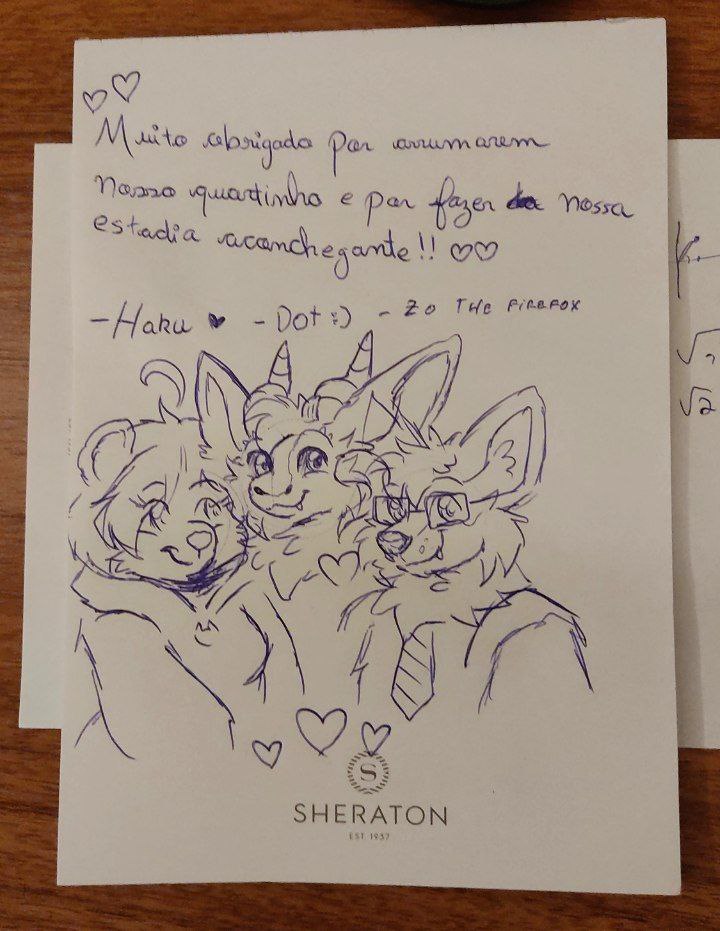 Muito obrigado por arrumarem
nosso quartinho e por fazer da nossa
estadia aconchegante!! ♡♡
-Haku ♥ -Dot :) - Zo THE FIREFOX
S
SHERATON
EST 1937
√2